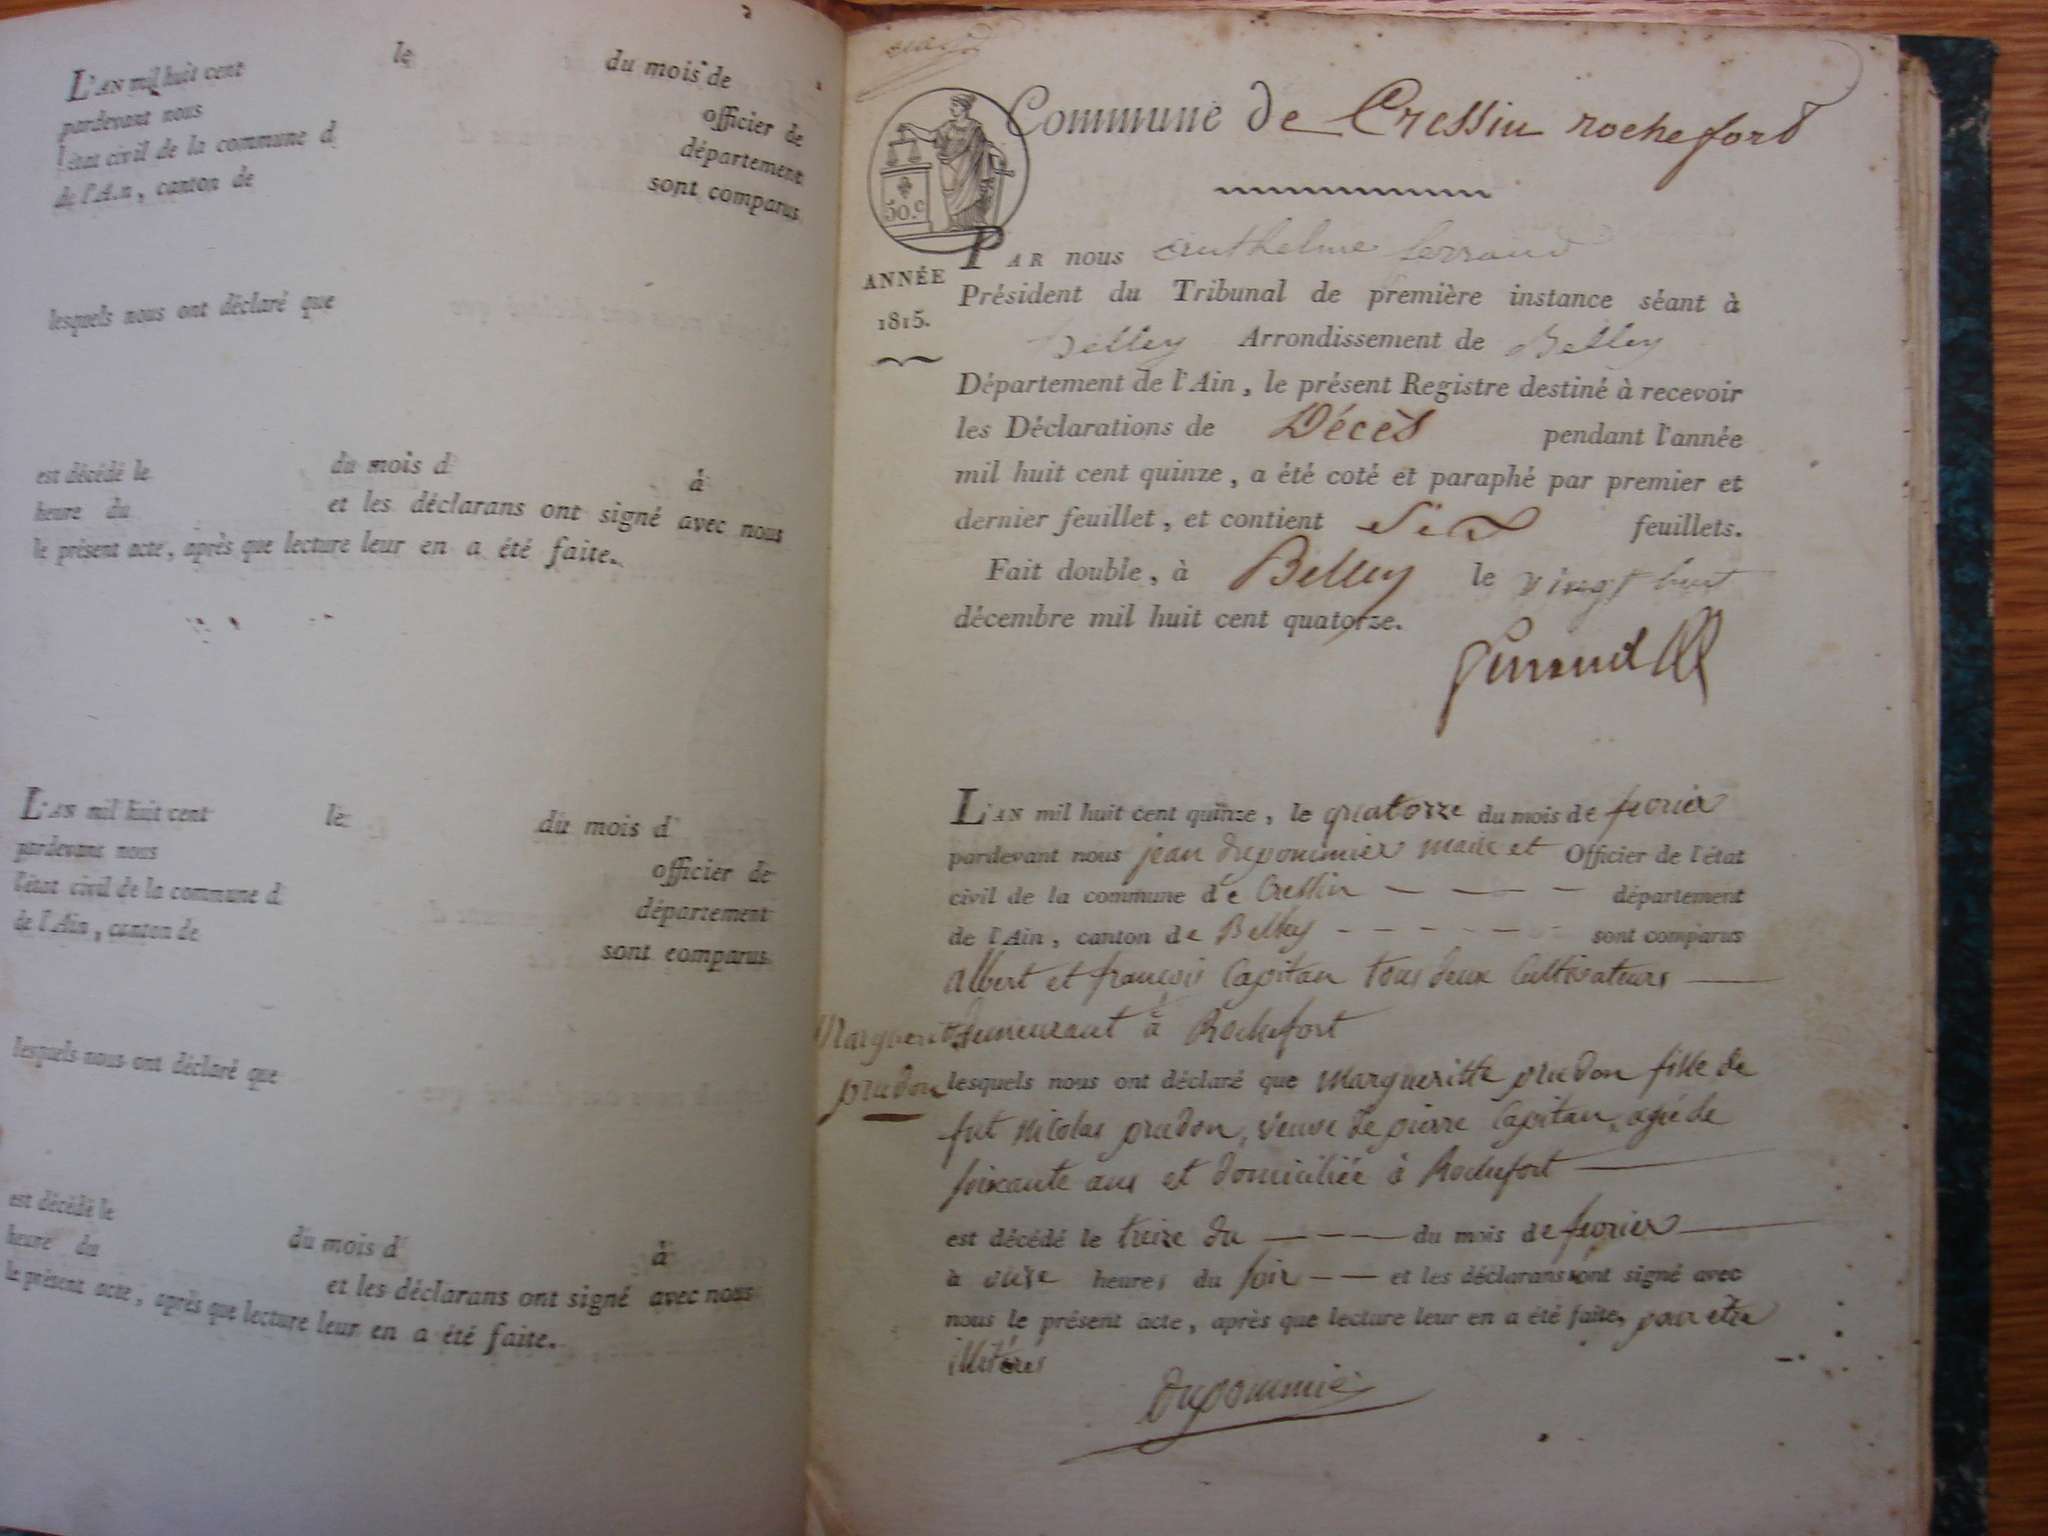 L'AN mil huit cent le du mois de
pardevant nous officier de
l'état civil de la commune d département
de l'Ain, canton de sont comparus
lesquels nous ont déclaré que
est décédé le du mois d à
heure du et les déclarans ont signé avec nous
le présent acte, après que lecture leur en a été faite.
L'AN mil huit cent le du mois d
pardevant nous officier de
l'état civil de la commune d département
de l'Ain, canton de sont comparus
lesquels nous ont déclaré que
est décédé le du mois d à
heure du et les déclarans ont signé avec nous
le présent acte, après que lecture leur en a été faite.
Commune de Cressin rochefort
50.c
ANNÉE
1815.
PAR nous Anthelme ferrand
Président du Tribunal de première instance séant à
Belley Arrondissement de Belley
Département de l'Ain, le présent Registre destiné à recevoir
les Déclarations de Décès pendant l'année
mil huit cent quinze, a été coté et paraphé par premier et
dernier feuillet, et contient six feuillets.
Fait double, à Belley le vingt huit
décembre mil huit cent quatorze.
L'AN mil huit cent quinze, le quatorze du mois de fevrier
pardevant nous jean dupommier maire et Officier de l'état
civil de la commune de Cressin département
de l'Ain, canton de Belley sont comparus
albert et françois Capitan tous deux Cultivateurs
demeurant à Rochefort
Margueritte
prudon
lesquels nous ont déclaré que margueritte prudon fille de
fut nicolas prudon, veuve de pierre Capitan, agée de
soixante ans et domiciliée à Rochefort
est décédé le treize du du mois de fevrier
à onze heures du soir et les déclarans ont signé avec
nous le présent acte, après que lecture leur en a été faite, pour etre
illiterés
dupommier